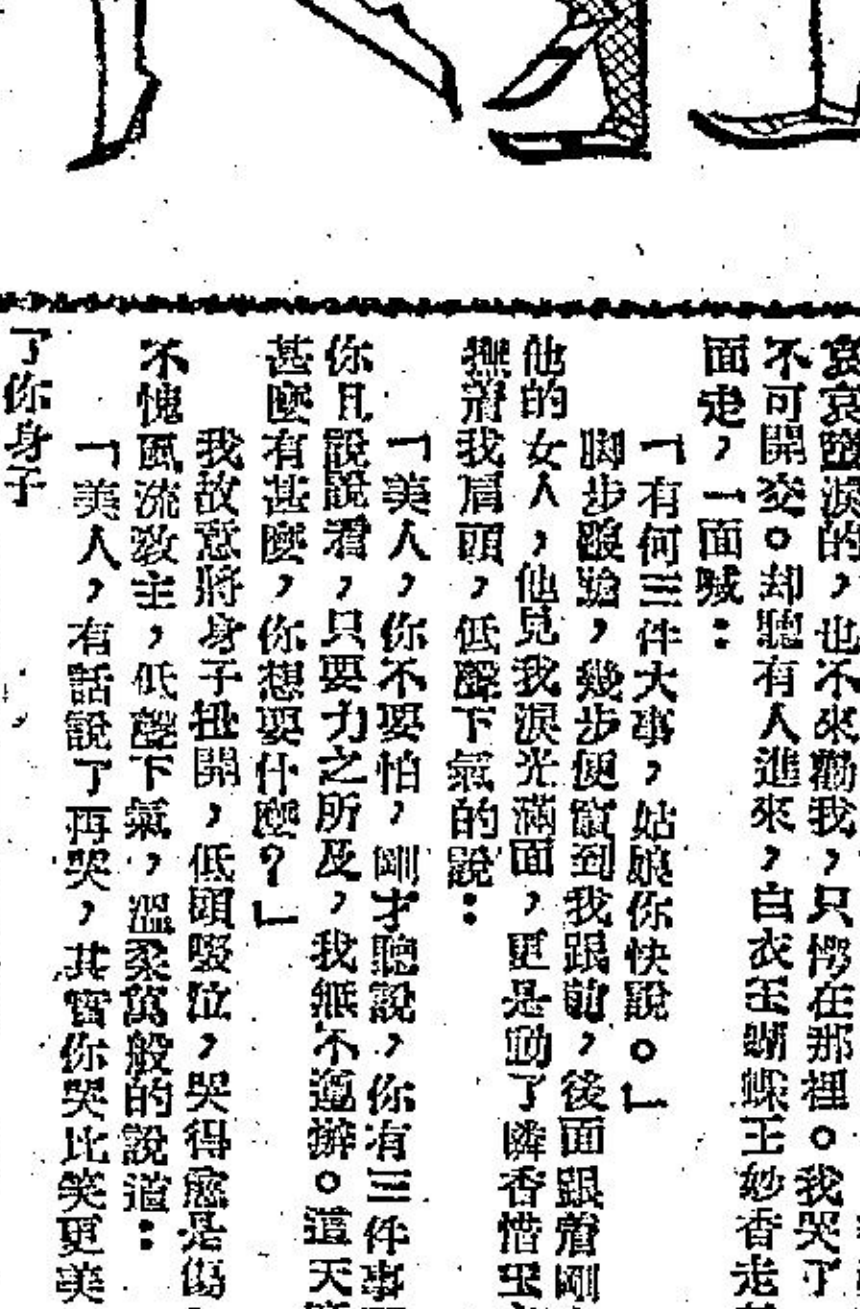 哀哀墮淚的，也不來勸我，只愕在那裡。我哭了
不可開交。却聽有人進來，白衣玉蝴蝶王妙香走
面走，一面喊：
「有何三件大事，姑娘你快說。」
脚步踉蹌，幾步便竄到我跟前，後面跟着剛
他的女人，他見我淚光滿面，更是動了憐香惜玉
撫着我肩頭，低聲下氣的說：
「美人，你不要怕，剛才聽說，你有三件事
你且說說看，只要力之所及，我無不遵辦。這天
甚麼有甚麼，你想要什麼？」
我故意將身子扭開，低頭啜泣，哭得愈是傷
不愧風流敎主，低聲下氣，溫柔萬般的說道：
「美人，有話說了再哭，其實你哭比笑更美
了你身子